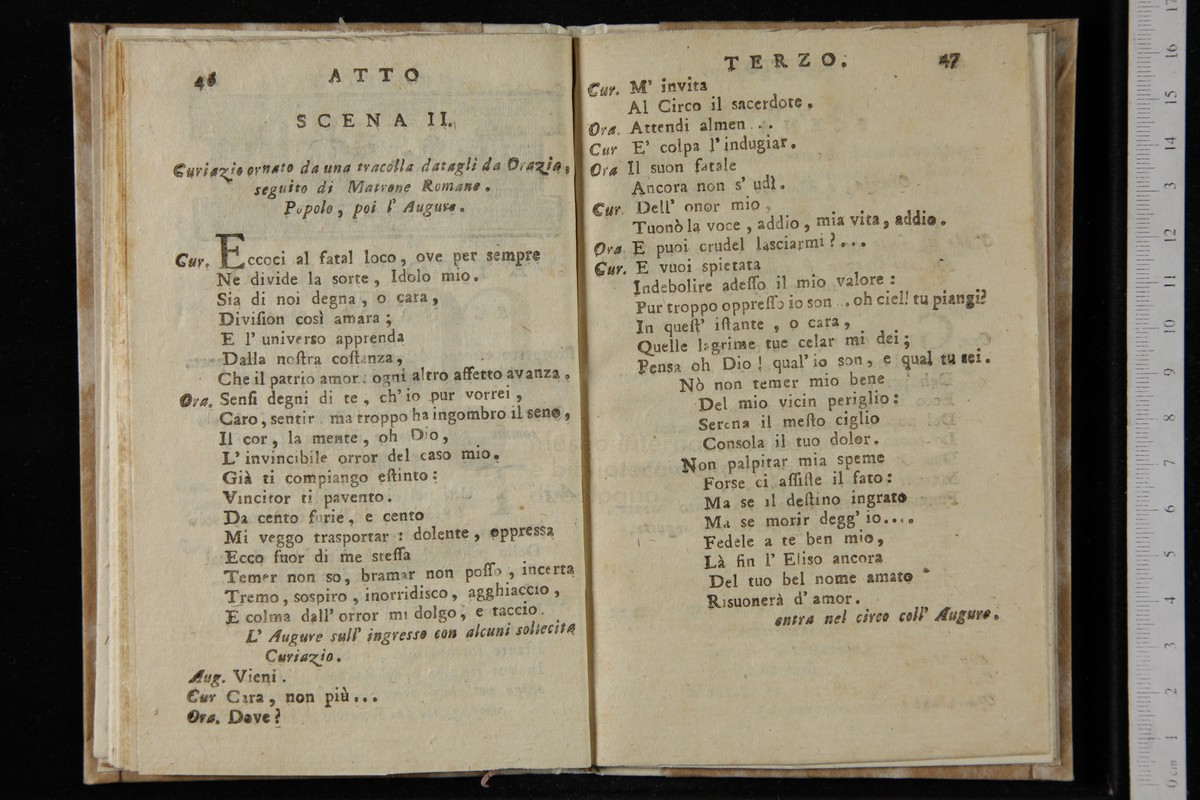 46
ATTO
SCENA II.
Curiazio ornato da una tracolla datagli da Orazia,
seguito di Matrone Romane.
Popolo, poi l' Augure.
Cur. Eccoci al fatal loco, ove per sempre
Ne divide la sorte, Idolo mio.
Sia di noi degna, o cara,
Diviſion così amara;
E l' universo apprenda
Dalla noſtra coſtanza,
Che il patrio amor ogni altro affetto avanza.
Ora. Senſi degni di te, ch' io pur vorrei,
Caro, sentir ma troppo ha ingombro il seno,
Il cor, la mente, oh Dio,
L' invincibile orror del caso mio.
Già ti compiango eſtinto:
Vincitor ti pavento.
Da cento furie, e cento
Mi veggo trasportar: dolente, oppressa
Ecco fuor di me steſſa
Temer non so, bramar non poſſo, incerta
Tremo, sospiro, inorridisco, agghiaccio,
E colma dall' orror mi dolgo, e taccio.
L' Augure sull' ingresso con alcuni sollecita
Curiazio.
Aug. Vieni.
Cur Cara, non più...
Ora. Dove?
TERZO.
47
Cur. M' invita
Al Circo il sacerdote.
Ora. Attendi almen...
Cur E' colpa l' indugiar.
Ora Il suon fatale
Ancora non s' udì.
Cur. Dell' onor mio
Tuonò la voce, addio, mia vita, addio.
Ora E puoi crudel lasciarmi?...
Cur. E vuoi spietata
Indebolire adeſſo il mio valore:
Pur troppo oppreſſo io son .. oh ciel! tu piangi?
In queſt' iſtante, o cara,
Quelle lagrime tue celar mi dei;
Pensa oh Dio! qual' io son, e qual tu sei.
Nò non temer mio bene
Del mio vicin periglio:
Serena il meſto ciglio
Consola il tuo dolor.
Non palpitar mia speme
Forse ci aſſiſte il fato:
Ma se il deſtino ingrato
Ma se morir degg' io....
Fedele a te ben mio,
Là fin l' Eliso ancora
Del tuo bel nome amato
Risuonerà d' amor.
entra nel circo coll' Augure.